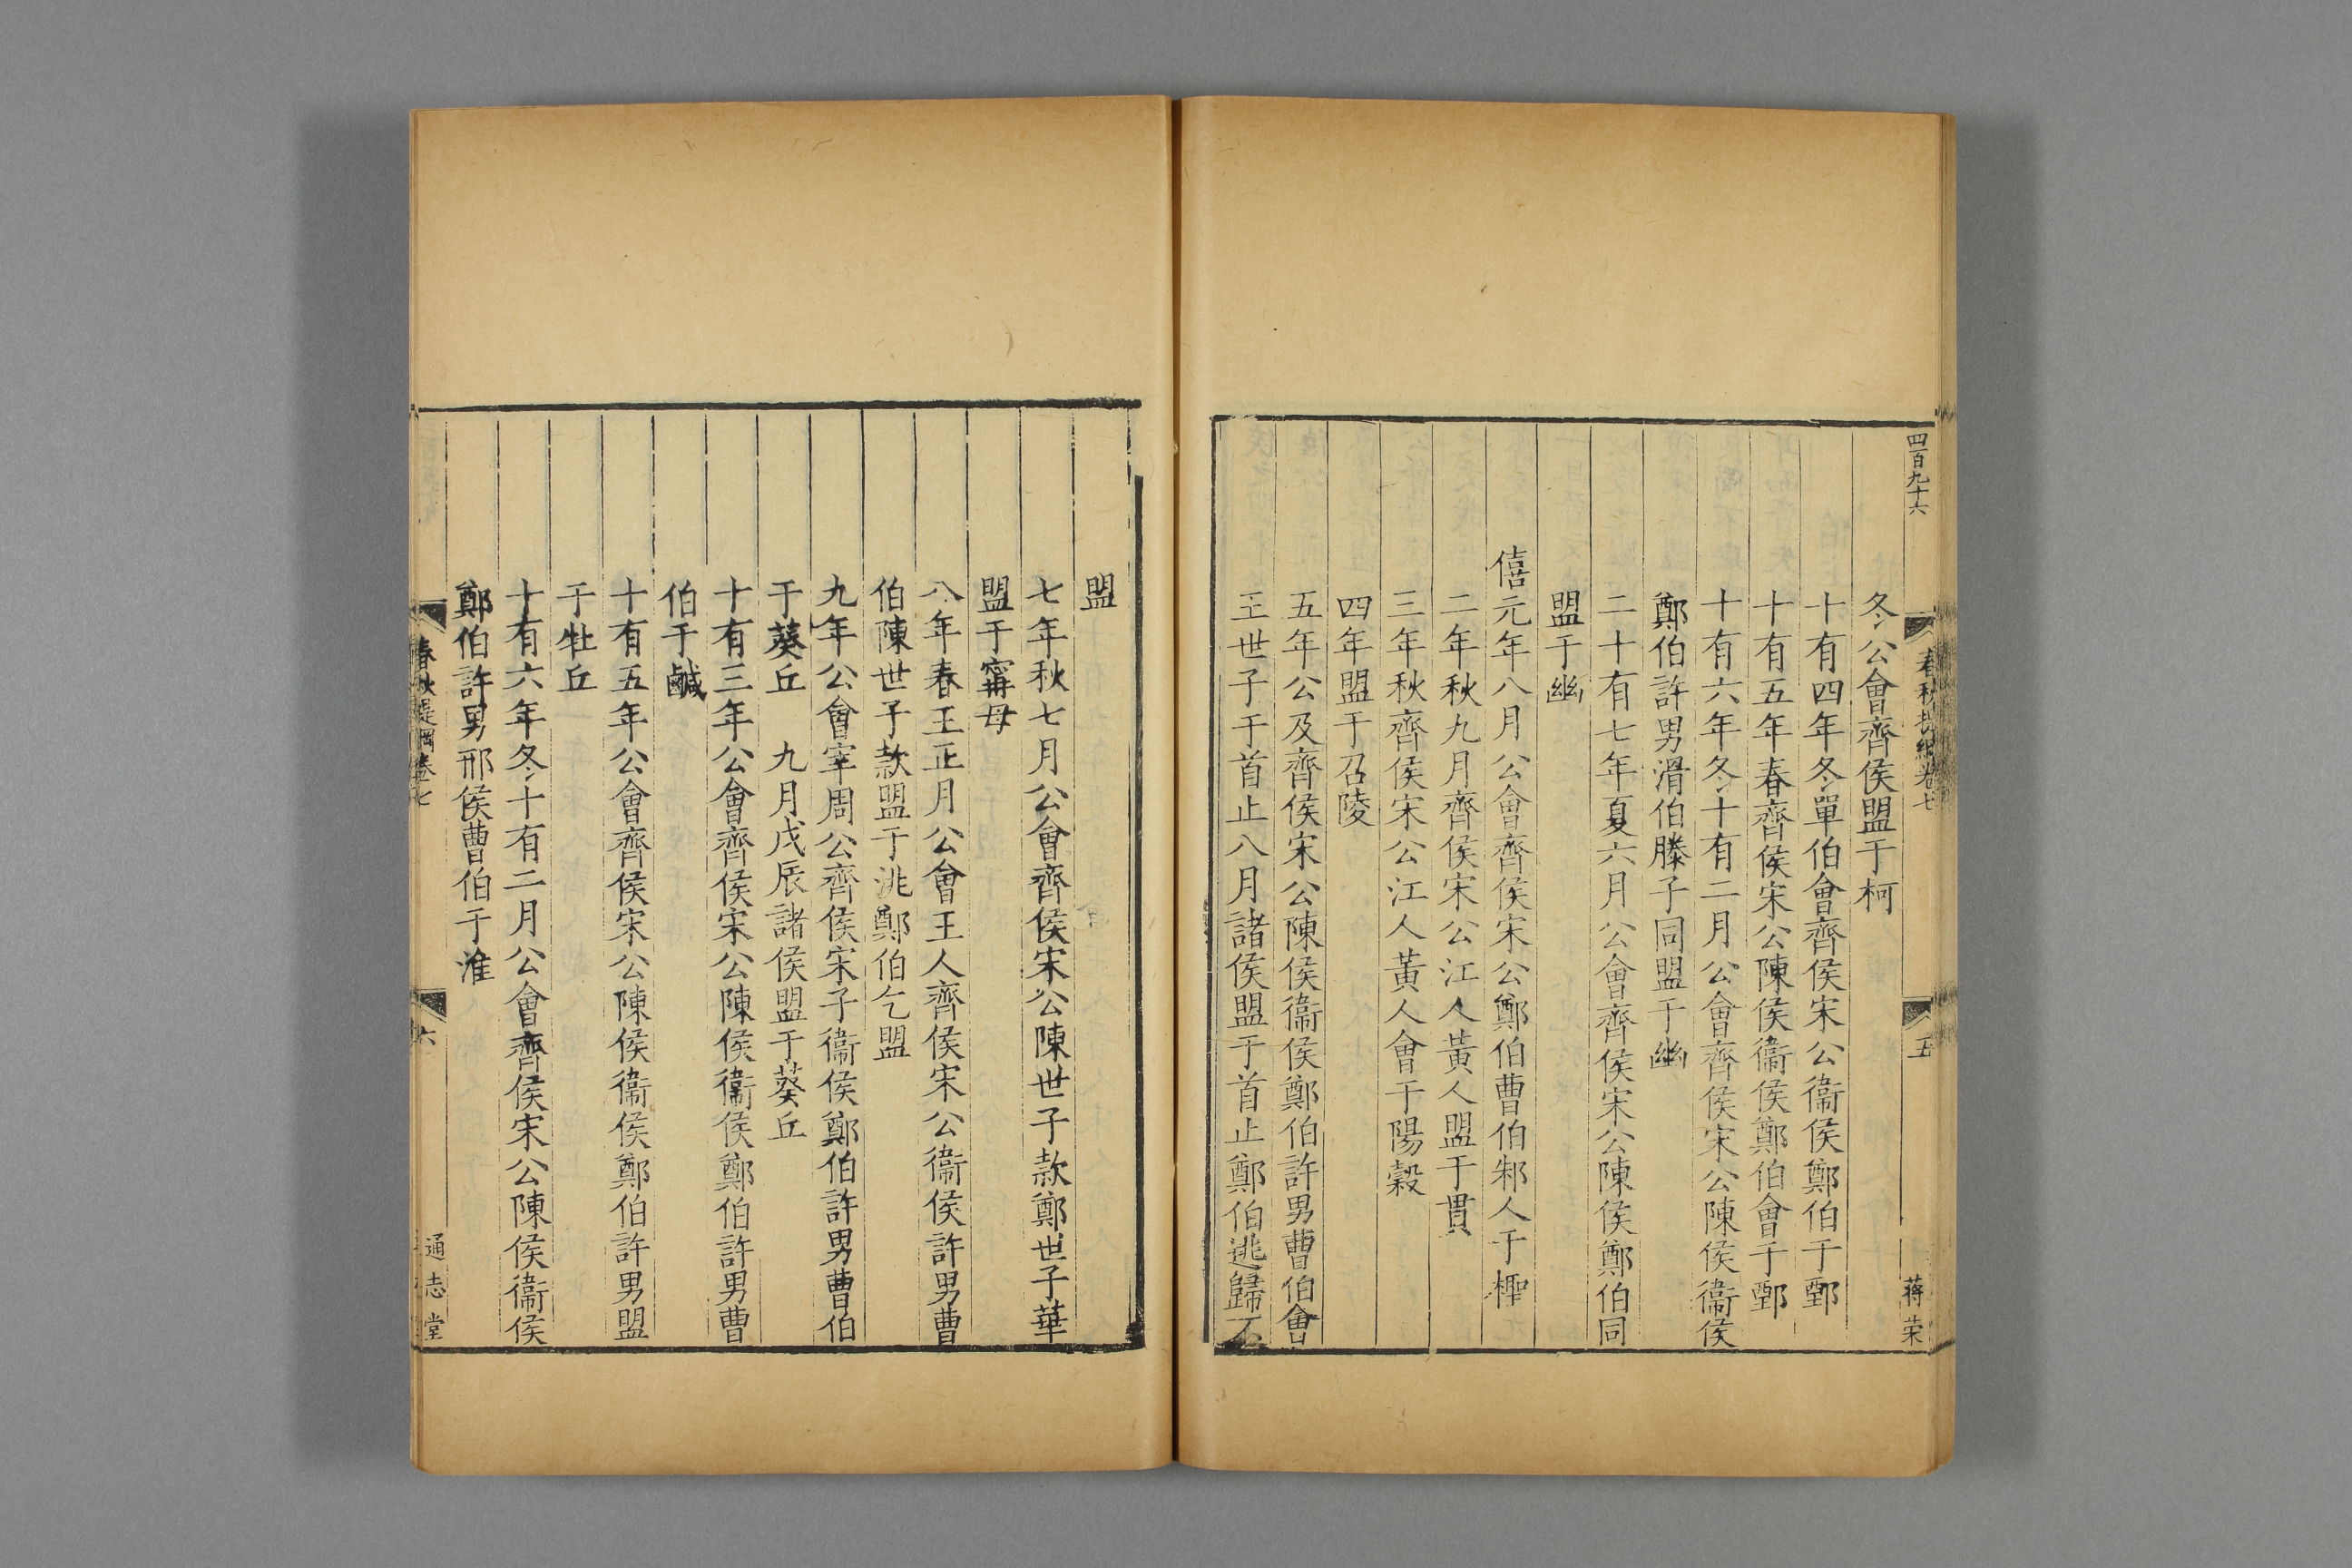 四百九十六
春秋提綱卷七
五
蔣荣
冬公會齊侯盟于柯
十有四年冬單伯會齊侯宋公衞侯鄭伯于鄄
十有五年春齊侯宋公陳侯衞侯鄭伯會于鄄
十有六年冬十有二月公會齊侯宋公陳侯衞侯
鄭伯許男滑伯滕子同盟于幽
二十有七年夏六月公會齊侯宋公陳侯鄭伯同
盟于幽
僖元年八月公會齊侯宋公鄭伯曹伯邾人于檉
二年秋九月齊侯宋公江人黃人盟于貫
三年秋齊侯宋公江人黃人會于陽穀
四年盟于召陵
五年公及齊侯宋公陳侯衞侯鄭伯許男曹伯會
王世子于首止八月諸侯盟于首止鄭伯逃歸不
盟
七年秋七月公會齊侯宋公陳世子款鄭世子華
盟于甯母
八年春王正月公會王人齊侯宋公衞侯許男曹
伯陳世子款盟于洮鄭伯乞盟
九年公會宰周公齊侯宋子衞侯鄭伯許男曹伯
于葵丘　九月戊辰諸侯盟于葵丘
十有三年公會齊侯宋公陳侯衞侯鄭伯許男曹
伯于鹹
十有五年公會齊侯宋公陳侯衞侯鄭伯許男盟
于牡丘
十有六年冬十有二月公會齊侯宋公陳侯衞侯
鄭伯許男邢侯曹伯于淮
春秋提綱卷七
六
通志堂